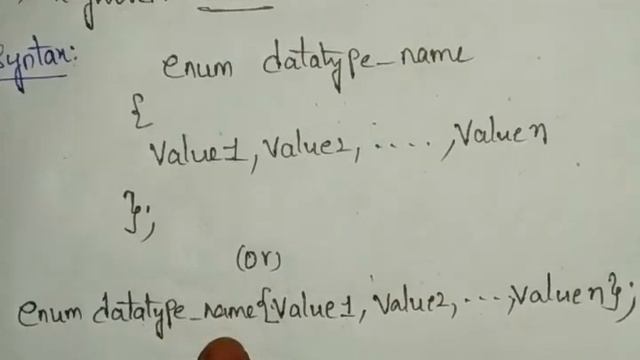 Syntax:
enum datatype_name
{
Value1, Value2, ...., Value n
};
(or)
enum datatype_name{Value1, Value2, ..., Value n};